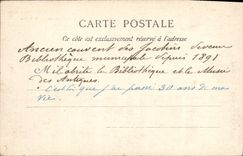 CARTE POSTALE
Ce côté est exclusivement réservé à l'adresse
Ancien couvent des Jacobins devenu
Bibliothèque municipale depuis 1891
Il abrite la Bibliothèque et le Musée
des Antiques.
c'est là que j'ai passé 30 ans de ma
vie.